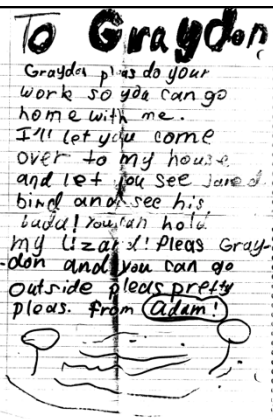 To Graydon
Graydon pleas do your
work so you can go
home with me.
I'll let you come
over to my house
and let you see Jared
bind and see his
budd! You can hold
my lizard! Pleas Gray-
-don and you can go
outside pleas pretty
pleas. from Adam!